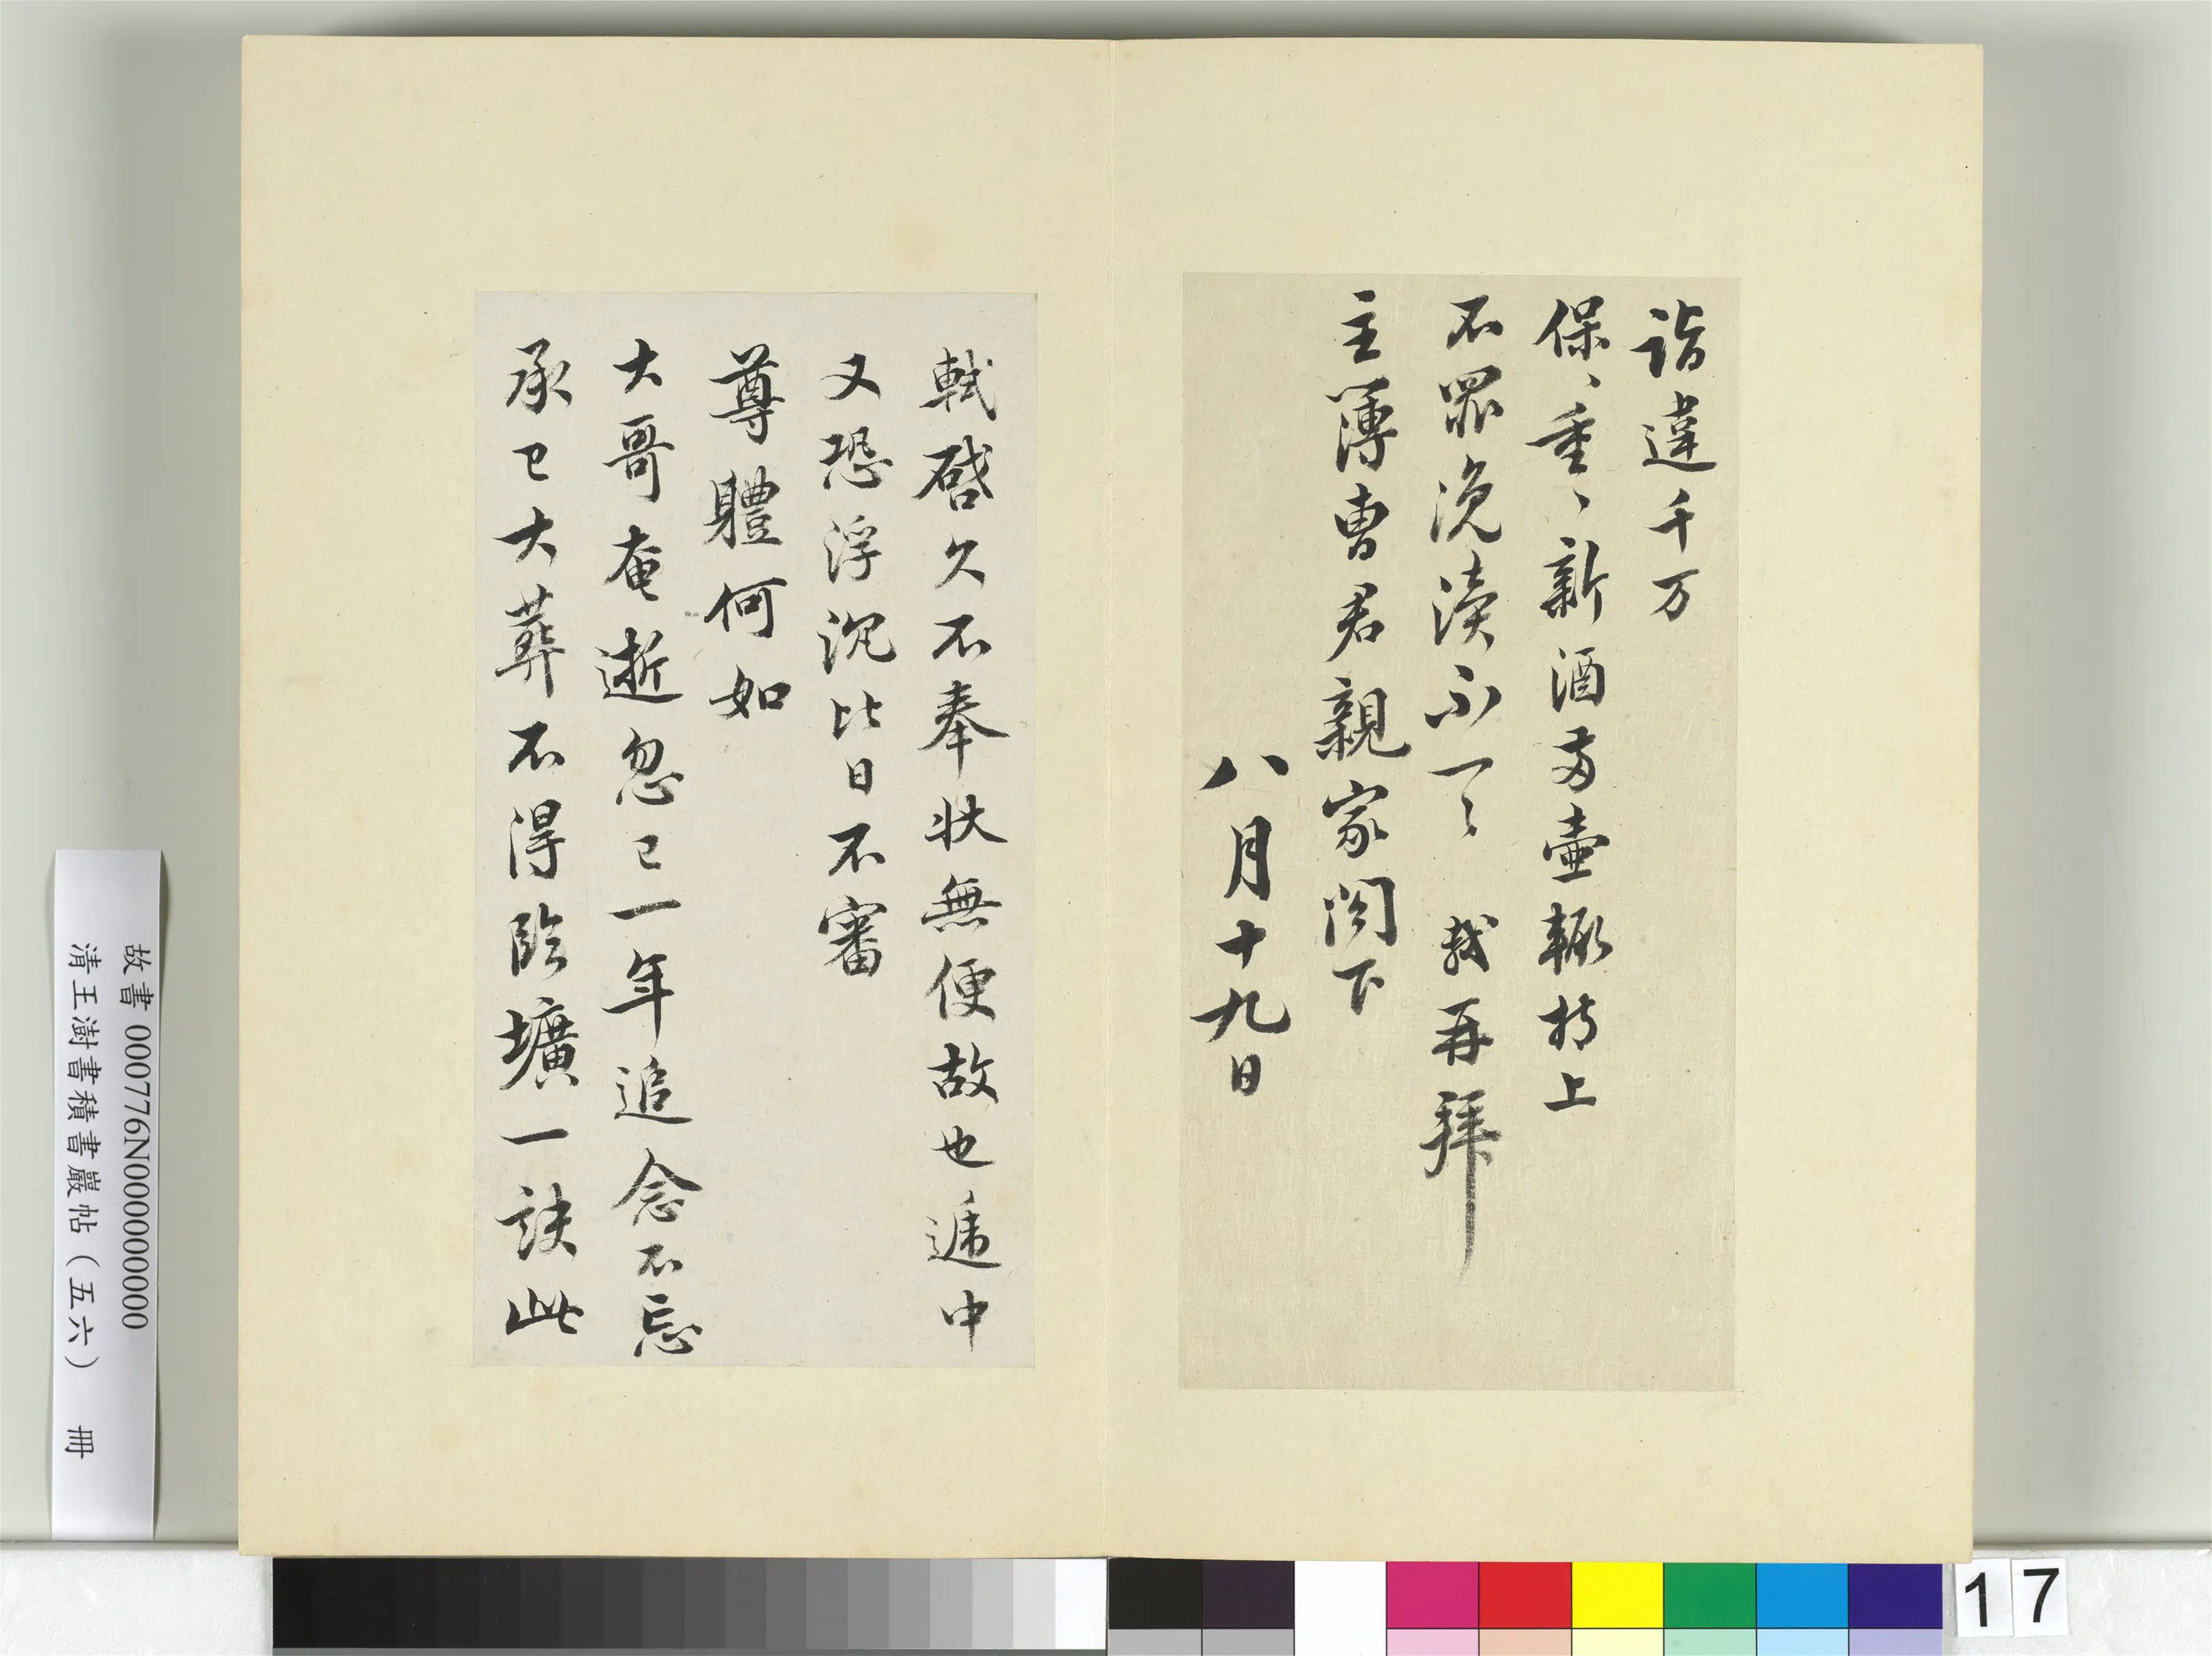 詣違千万
保〻重〻新酒两壷輙持上
不罪浼瀆不一〻 軾再拜
主簿曹君親家閤下
八月十九日
軾啓久不奉狀無便故也遞中
又恐浮沉比日不審
尊體何如
大哥奄逝忽已一年追念不忘
承已大葬不得臨壙一訣此
故書 000776N000000000
清王澍書積書巖帖（五六） 冊
17